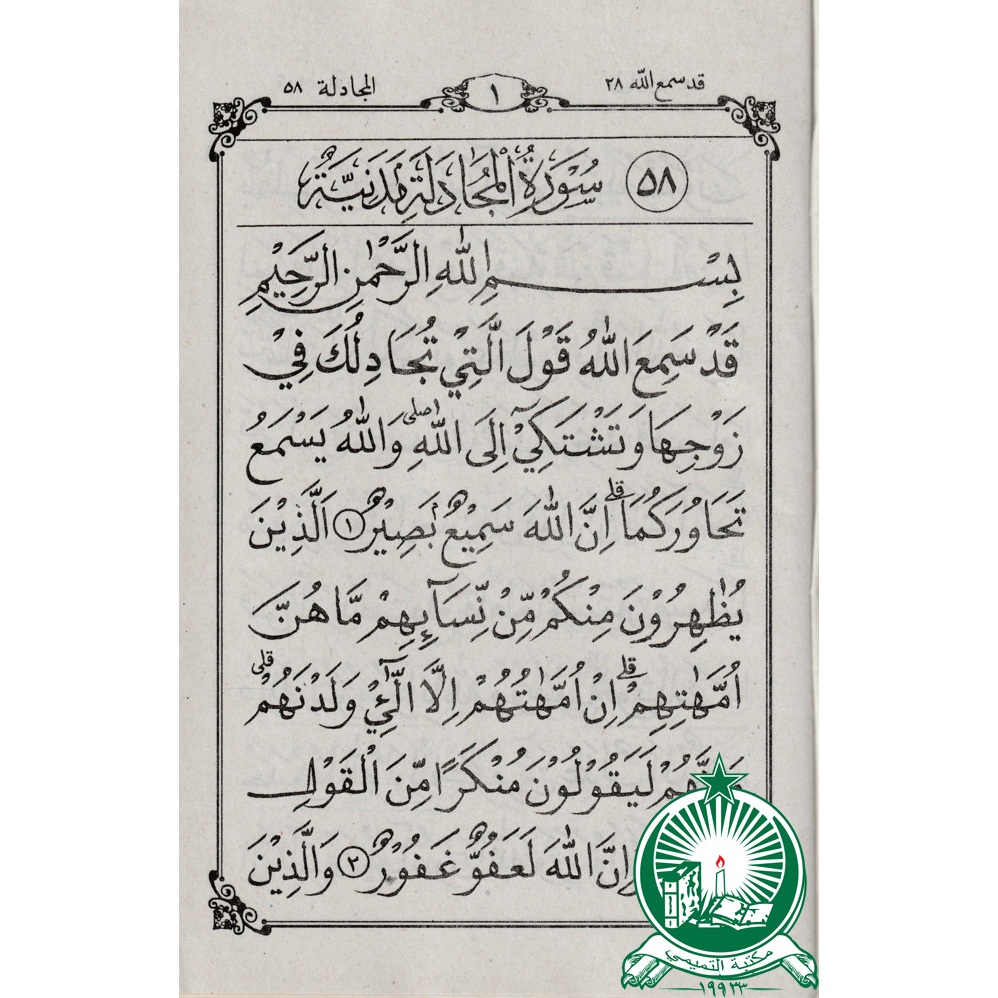 قد سمع الله ٢٨
١
المجادلة ٥٨
٥٨ سُوْرَةُ الْمُجَادَلَةِ مَدَنِيَّةٌ
بِسْمِ اللهِ الرَّحْمٰنِ الرَّحِيْمِ
قَدْ سَمِعَ اللهُ قَوْلَ الَّتِيْ تُجَادِلُكَ فِيْ
زَوْجِهَا وَتَشْتَكِيْٓ اِلَى اللهِ ۖ وَاللهُ يَسْمَعُ
تَحَاوُرَكُمَا ۗ اِنَّ اللهَ سَمِيْعٌ بَصِيْرٌ ١ اَلَّذِيْنَ
يُظٰهِرُوْنَ مِنْكُمْ مِّنْ نِّسَآىِٕهِمْ مَّا هُنَّ
اُمَّهٰتِهِمْ ۗ اِنْ اُمَّهٰتُهُمْ اِلَّا الّٰۤـِٔيْ وَلَدْنَهُمْ ۗ
لَيَقُوْلُوْنَ مُنْكَرًا مِّنَ الْقَوْلِ
اِنَّ اللهَ لَعَفُوٌّ غَفُوْرٌ ٢ وَالَّذِيْنَ
مكتبة التميمي